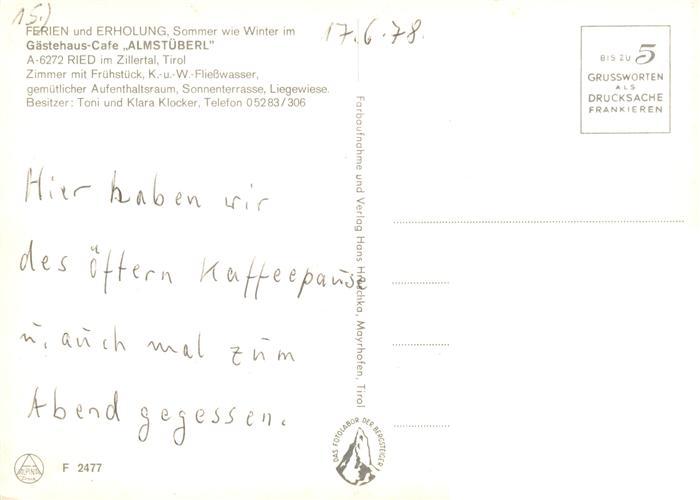 15.)
FERIEN und ERHOLUNG, Sommer wie Winter im
Gästehaus-Cafe „ALMSTÜBERL"
A-6272 RIED im Zillertal, Tirol
Zimmer mit Frühstück, K.-u.-W.-Fließwasser,
gemütlicher Aufenthaltsraum, Sonnenterrasse, Liegewiese.
Besitzer: Toni und Klara Klocker, Telefon 05283/306
17.6.78.
BIS ZU 5
GRUSSWORTEN
ALS
DRUCKSACHE
FRANKIEREN
Hier haben wir
des öftern Kaffeepause
u. auch mal zum
Abend gegessen.
Farbaufnahme und Verlag Hans Hruschka, Mayrhofen, Tirol
DAS FOTOLABOR DER BERGSTEIGER
ALPINA
F 2477